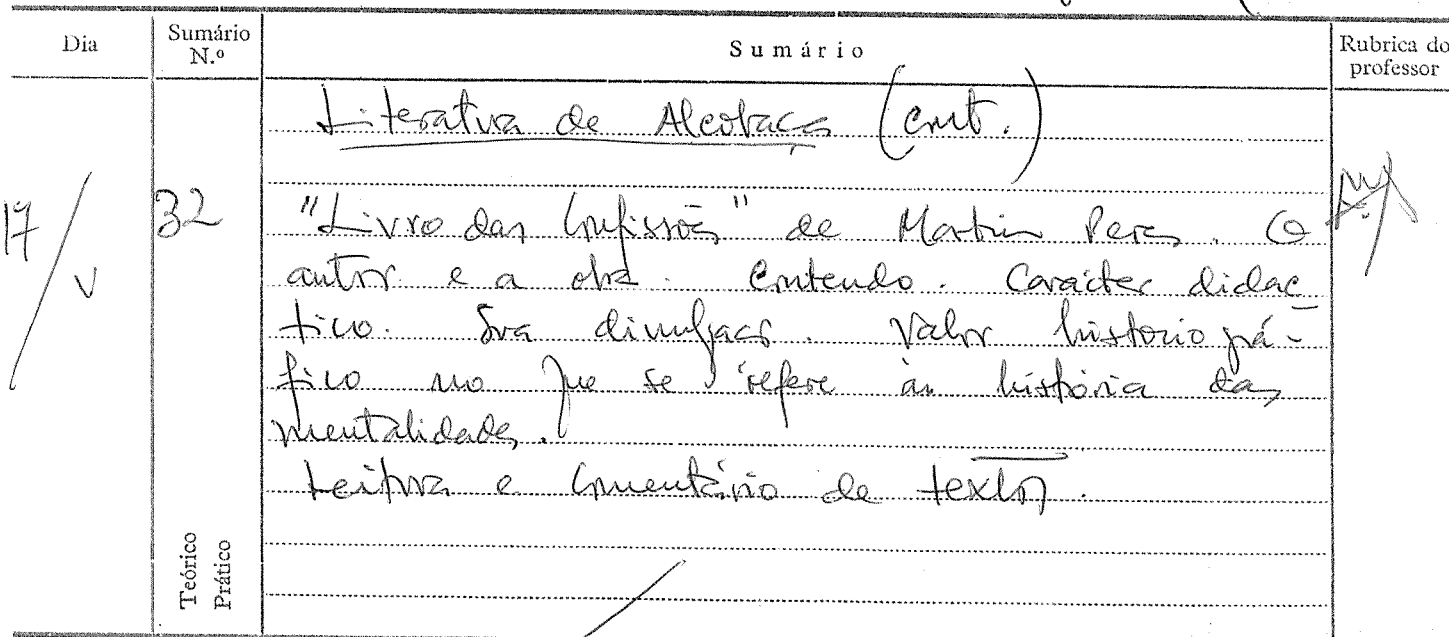 Dia
Sumário N.º
Sumário
Rubrica do professor
Literatura de Alcobaça (cont.)
17/V
32
"Livro das Confissões" de Martin Peres. O
autor e a obra. Conteúdo. Carácter didac-
tico. Sua divulgação. Valor historiográ-
fico no que se refere à história das
mentalidades.
Leitura e comentário de textos.
Teórico
Prático